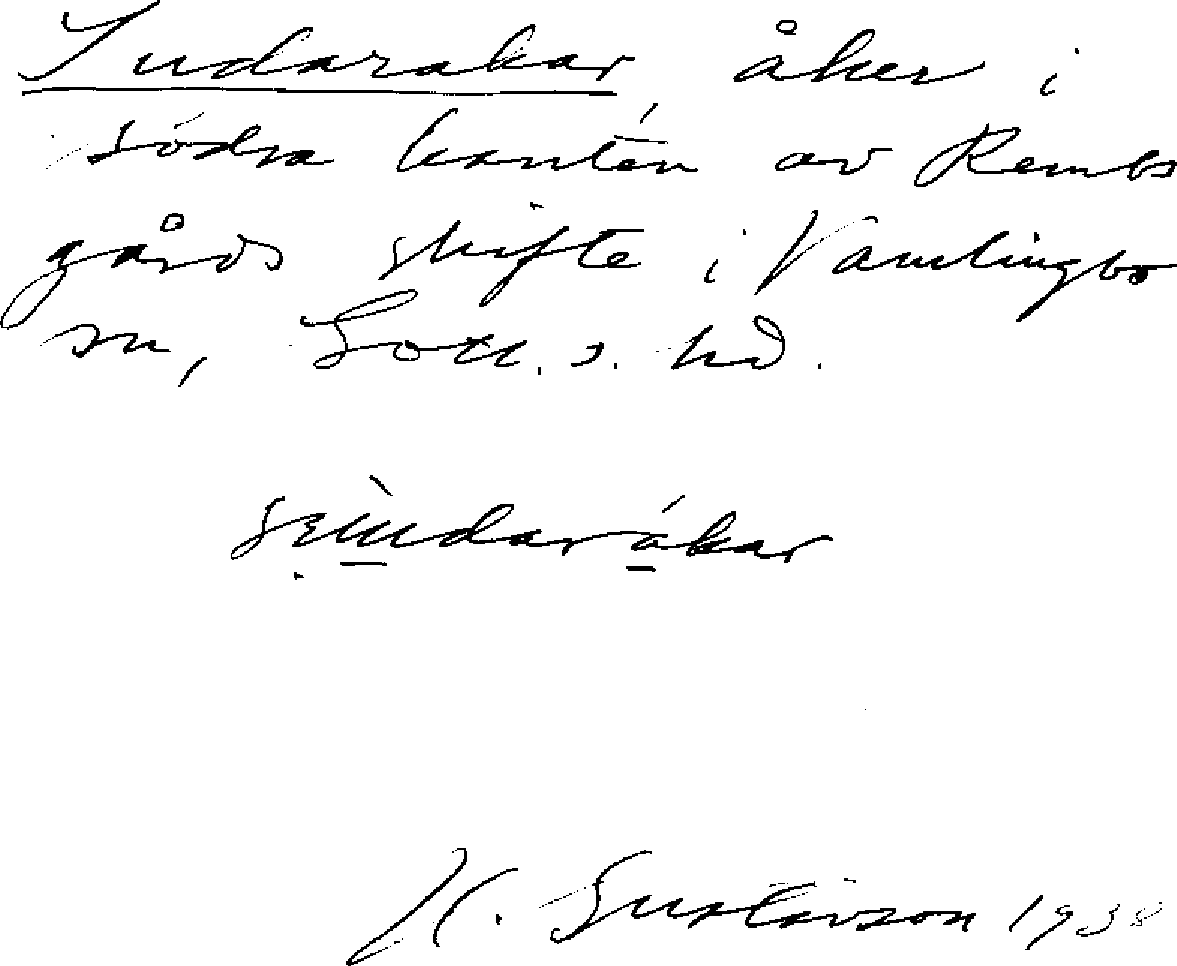 Sudarakar åker i
södra kanten av Rembs
gårds skifte i Vamlingbo
sn, Gotl. s. hd.
H. Gustavson 1938